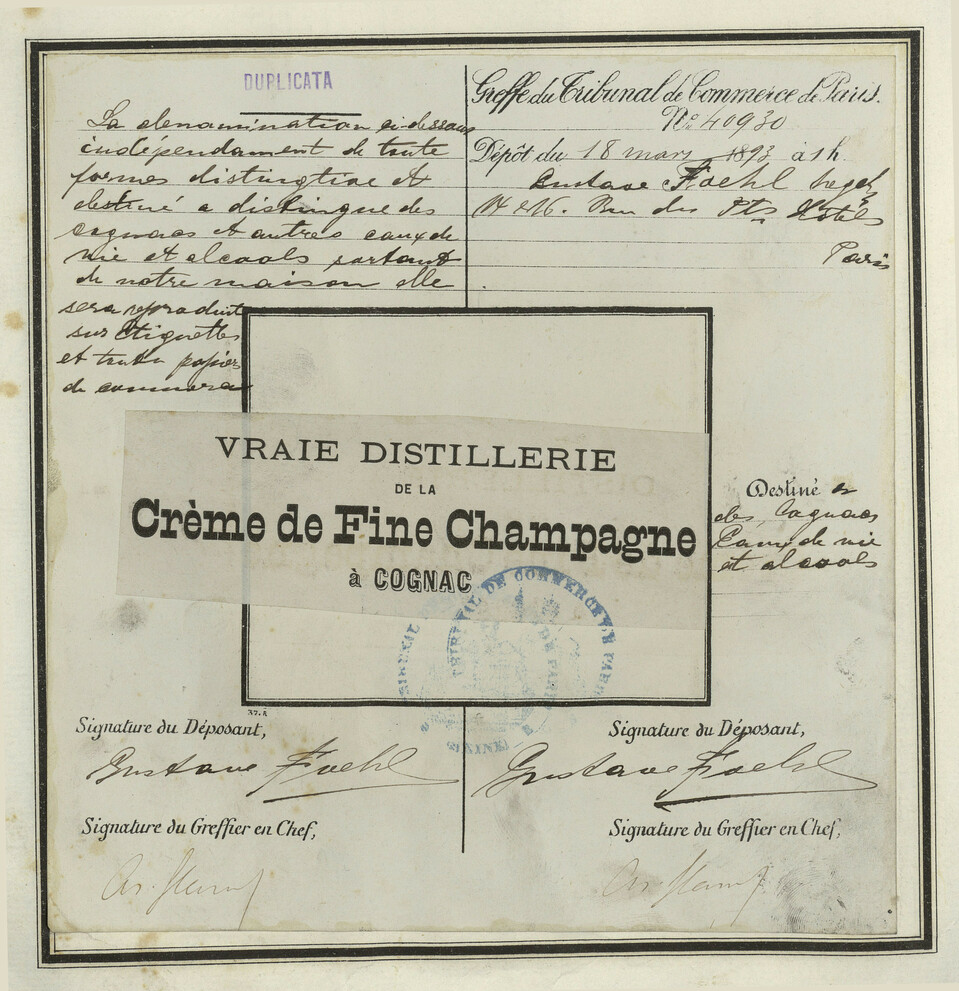 DUPLICATA
La denamination ci-dessous
independament de toute
formes distingtive et
destiné a distingue des
cognacs et autres eaux de
vie et alcools sortant
de notre maison elle
sera reproduit
sur étiquettes
et toute papiers
de commerce
Greffe du Tribunal de Commerce de Paris.
No. 40930
Dépôt du 18 mars 1893 à 1h.
Gustave Foehl
14 & 16. Rue des Pts Hotels
Paris
VRAIE DISTILLERIE
DE LA
Crème de Fine Champagne
à COGNAC
TRIBUNAL DE COMMERCE
DE PARIS
Destiné a
des Cognacs
Eaux de vie
et alcools
Signature du Déposant,
Gustave Foehl
Signature du Greffier en Chef,
Signature du Déposant,
Gustave Foehl
Signature du Greffier en Chef,